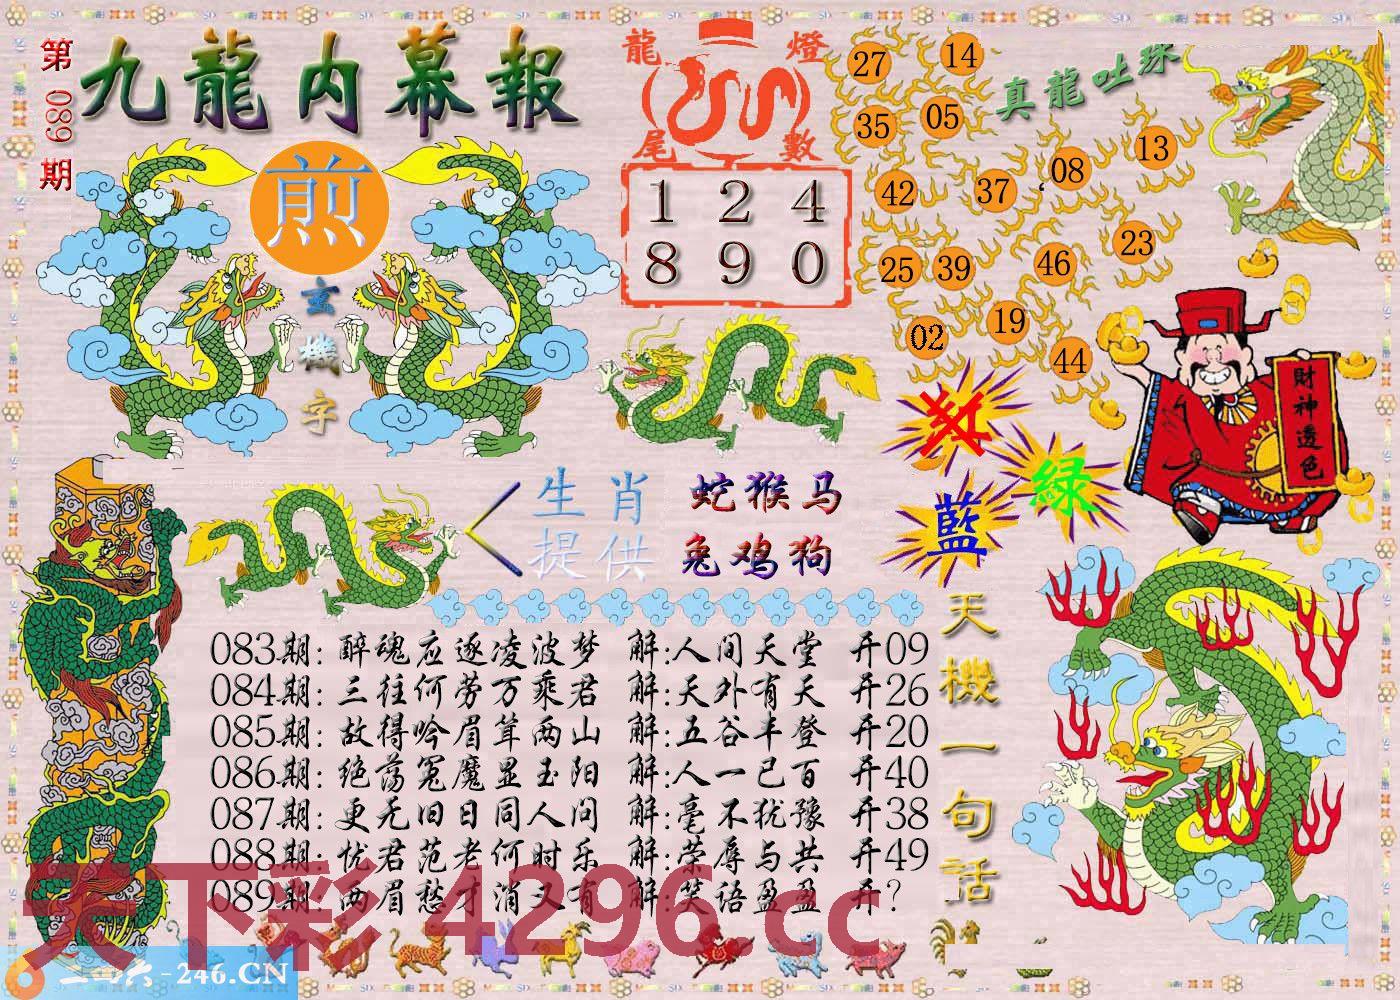 第089期
九龍内幕報
煎
玄機字
龍燈
尾數
1 2 4
8 9 0
真龍吐珠
27 14
35 05
42 37 08 13
25 39 46 23
02 19 44
紅
綠
藍
財神透色
生肖 蛇猴马
提供 兔鸡狗
083期: 醉魂应逐凌波梦 解:人间天堂 开09
084期: 三往何劳万乘君 解:天外有天 开26
085期: 故得吟眉耸两山 解:五谷丰登 开20
086期: 绝荡冤魔显玉阳 解:人一已百 开40
087期: 更无旧日同人问 解:毫不犹豫 开38
088期: 忧君范老何时乐 解:荣辱与共 开49
089期: 两眉愁才消又有 解:笑语盈盈 开?
天機一句話
天下彩 4296.cc
二四六-246.CN